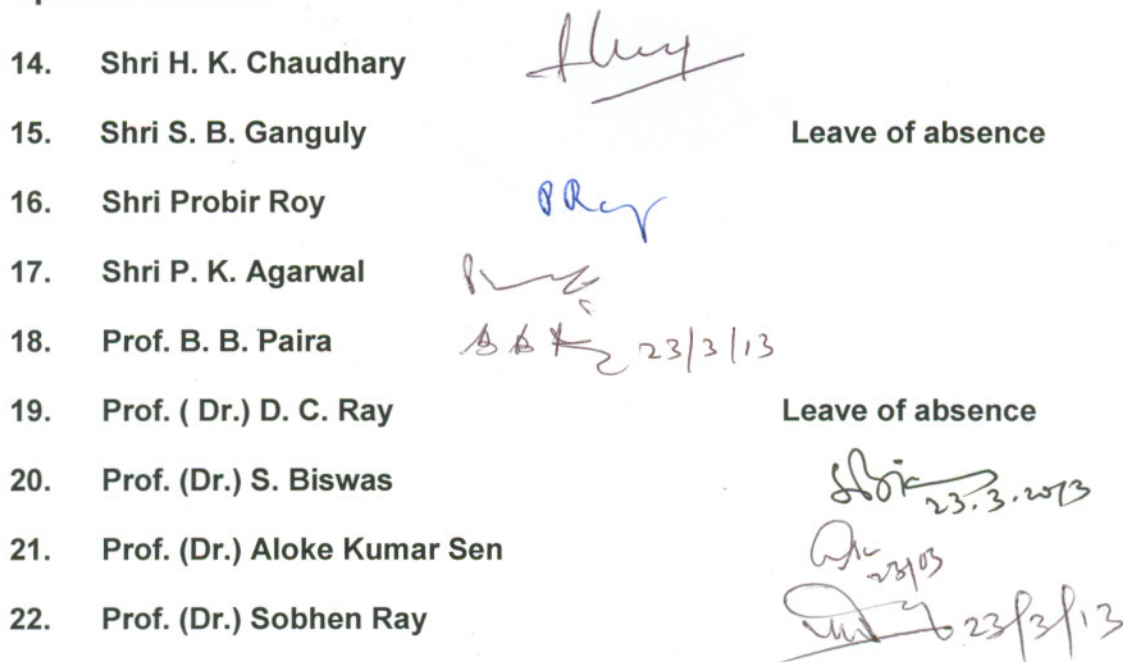 14. Shri H. K. Chaudhary
15. Shri S. B. Ganguly Leave of absence
16. Shri Probir Roy PRoy
17. Shri P. K. Agarwal
18. Prof. B. B. Paira 23/3/13
19. Prof. ( Dr.) D. C. Ray Leave of absence
20. Prof. (Dr.) S. Biswas 23.3.2013
21. Prof. (Dr.) Aloke Kumar Sen 23/03
22. Prof. (Dr.) Sobhen Ray 23/3/13